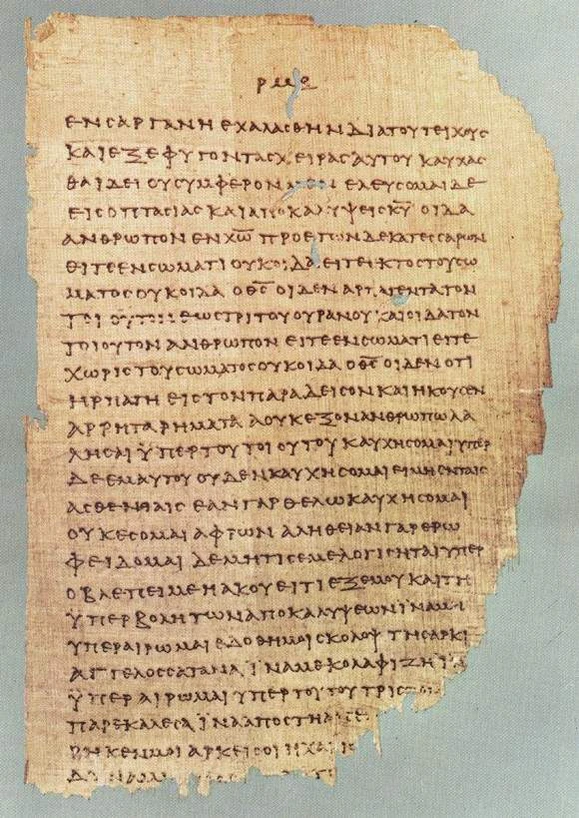 ΡΜΕ
ΕΝ ϹΑΡΓΑΝΗ ΕΧΑΛΑϹΘΗΝ ΔΙΑ ΤΟΥ ΤΕΙΧΟΥϹ
ΚΑΙ ΕΞΕΦΥΓΟΝ ΤΑϹ ΧΕΙΡΑϹ ΑΥΤΟΥ ΚΑΥΧΑϹ
ΘΑΙ ΔΕΙ ΟΥ ϹΥΜΦΕΡΟΝ ΜΕΝ ΕΛΕΥϹΟΜΑΙ ΔΕ
ΕΙϹ ΟΠΤΑϹΙΑϹ ΚΑΙ ΑΠΟΚΑΛΥΨΕΙϹ Κ̅Υ̅ ΟΙΔΑ
ΑΝΘΡΩΠΟΝ ΕΝ Χ̅Ω̅ ΠΡΟ ΕΤΩΝ ΔΕΚΑΤΕϹϹΑΡΩΝ
ΕΙΤΕ ΕΝ ϹΩΜΑΤΙ ΟΥΚ ΟΙΔΑ ΕΙΤΕ ΕΚΤΟϹ ΤΟΥ ϹΩ
ΜΑΤΟϹ ΟΥΚ ΟΙΔΑ Ο Θ̅Ϲ̅ ΟΙΔΕΝ ΑΡΠΑΓΕΝΤΑ ΤΟΝ
ΤΟΙΟΥΤΟΝ ΕΩϹ ΤΡΙΤΟΥ ΟΥΡΑΝΟΥ ΚΑΙ ΟΙΔΑ ΤΟΝ
ΤΟΙΟΥΤΟΝ ΑΝΘΡΩΠΟΝ ΕΙΤΕ ΕΝ ϹΩΜΑΤΙ ΕΙΤΕ
ΧΩΡΙϹ ΤΟΥ ϹΩΜΑΤΟϹ ΟΥΚ ΟΙΔΑ Ο Θ̅Ϲ̅ ΟΙΔΕΝ ΟΤΙ
ΗΡΠΑΓΗ ΕΙϹ ΤΟΝ ΠΑΡΑΔΕΙϹΟΝ ΚΑΙ ΗΚΟΥϹΕΝ
ΑΡΡΗΤΑ ΡΗΜΑΤΑ Α ΟΥΚ ΕΞΟΝ ΑΝΘΡΩΠΩ ΛΑ
ΛΗϹΑΙ ΫΠΕΡ ΤΟΥ ΤΟΙΟΥΤΟΥ ΚΑΥΧΗϹΟΜΑΙ ΥΠΕΡ
ΔΕ ΕΜΑΥΤΟΥ ΟΥΔΕΝ ΚΑΥΧΗϹΟΜΑΙ ΕΙ ΜΗ ΕΝ ΤΑΙϹ
ΑϹΘΕΝΕΙΑΙϹ ΕΑΝ ΓΑΡ ΘΕΛΩ ΚΑΥΧΗϹΟΜΑΙ
ΟΥΚ ΕϹΟΜΑΙ ΑΦΡΩΝ ΑΛΗΘΕΙΑΝ ΓΑΡ ΕΡΩ
ΦΕΙΔΟΜΑΙ ΔΕ ΜΗ ΤΙϹ ΕΜΕ ΛΟΓΙϹΗΤΑΙ ΥΠΕΡ
Ο ΒΛΕΠΕΙ ΜΕ Η ΑΚΟΥΕΙ ΤΙ ΕΞ ΕΜΟΥ ΚΑΙ ΤΗ
ΫΠΕΡΒΟΛΗ ΤΩΝ ΑΠΟΚΑΛΥΨΕΩΝ ΪΝΑ ΜΗ
ΥΠΕΡΑΙΡΩΜΑΙ ΕΔΟΘΗ ΜΟΙ ϹΚΟΛΟΨ ΤΗ ϹΑΡΚΙ
ΑΓΓΕΛΟϹ ϹΑΤΑΝΑ ΪΝΑ ΜΕ ΚΟΛΑΦΙΖΗ ΪΝΑ
ΫΠΕΡΑΙΡΩΜΑΙ ΥΠΕΡ ΤΟΥΤΟΥ ΤΡΙϹ
ΠΑΡΕΚΑΛΕϹΑ ΪΝΑ ΑΠΟϹΤΗ
ΡΗΚΕΝ ΜΟΙ ΑΡΚΕΙ ϹΟΙ Η ΧΑΡΙϹ